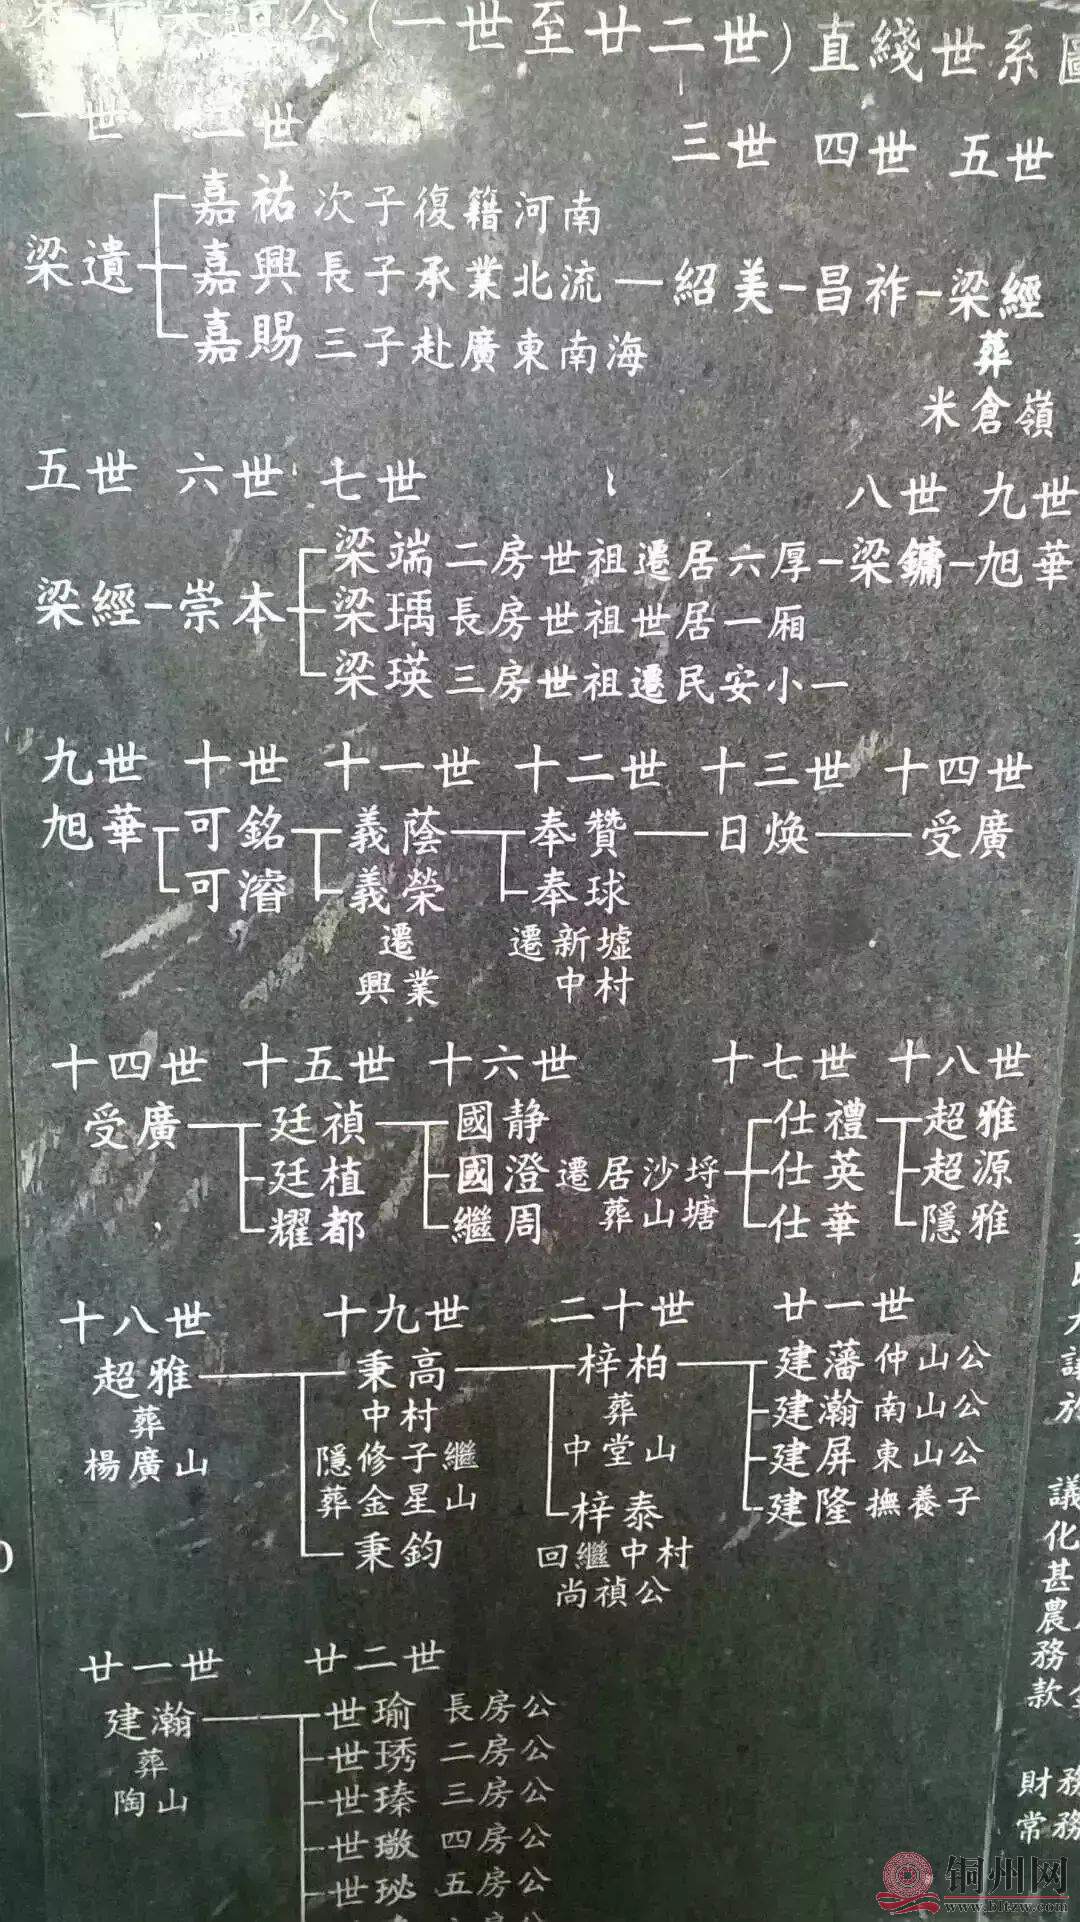 公(一世至廿二世)直綫世系圖
一世 二世 三世 四世 五世
嘉祐 次子復籍河南
梁遺 嘉興 長子承業北流 紹美 昌祚 梁經
嘉賜 三子赴廣東南海
葬
米倉嶺
五世 六世 七世 八世 九世
梁端 二房世祖遷居六厚 梁鏞 旭華
梁經 崇本 梁瑀 長房世祖世居一厢
梁瑛 三房世祖遷民安小一
九世 十世 十一世 十二世 十三世 十四世
旭華 可銘 義蔭 奉贊 日焕 受廣
可濬 義榮 奉球
遷 遷新墟
興業 中村
十四世 十五世 十六世 十七世 十八世
受廣 廷禎 國静 仕禮 超雅
廷植 國澄 遷居沙埒 仕英 超源
耀都 繼周 葬山塘 仕華 隱雅
十八世 十九世 二十世 廿一世
超雅 秉高 梓柏 建藩 仲山公
葬 中村 葬 建瀚 南山公
楊廣山 隱修子繼 中堂山 建屏 東山公
葬金星山 梓泰 建隆 撫養子
秉鈞 回繼中村
尚禎公
廿一世 廿二世
建瀚 世瑜 長房公
葬 世琇 二房公
陶山 世瑧 三房公
世璥 四房公
世珌 五房公
房公
議
化
甚
農
務
款
財務
常務
铜州网
www.bltzw.com